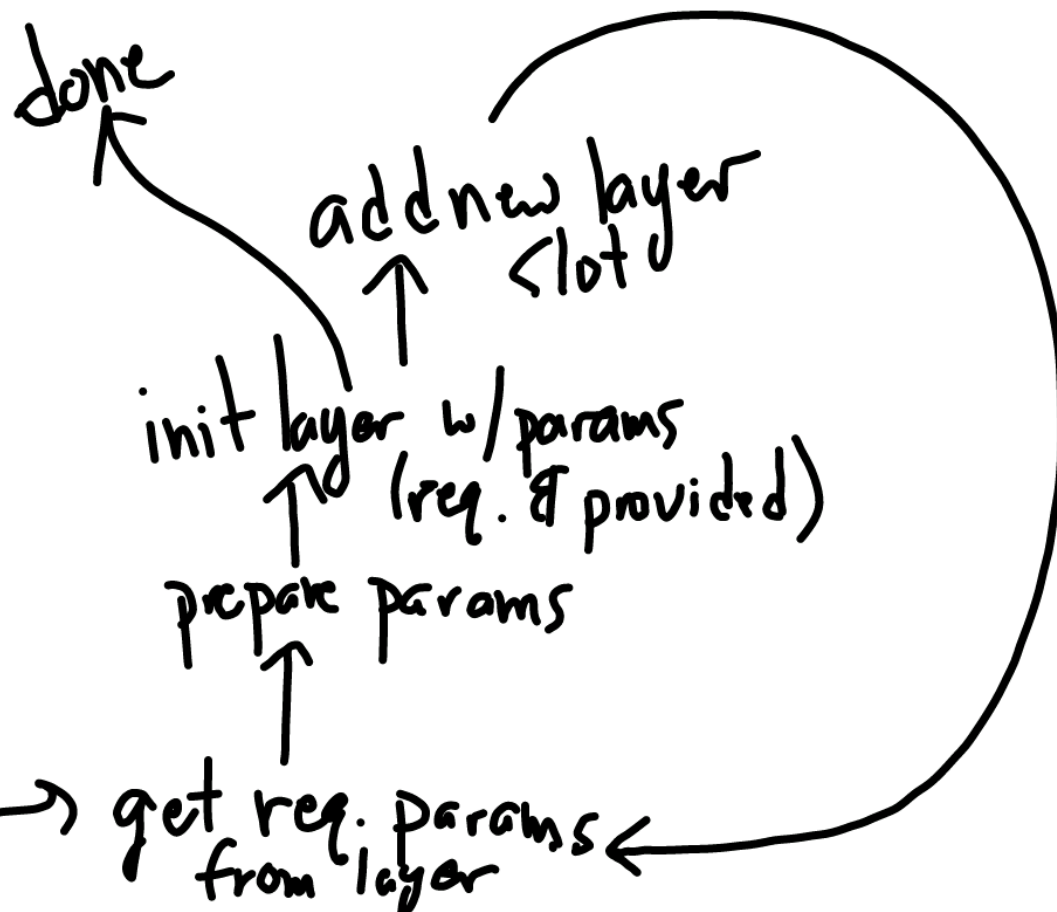 done
add new layer
slot
init layer w/params
(req. & provided)
prepare params
get req. params
from layer